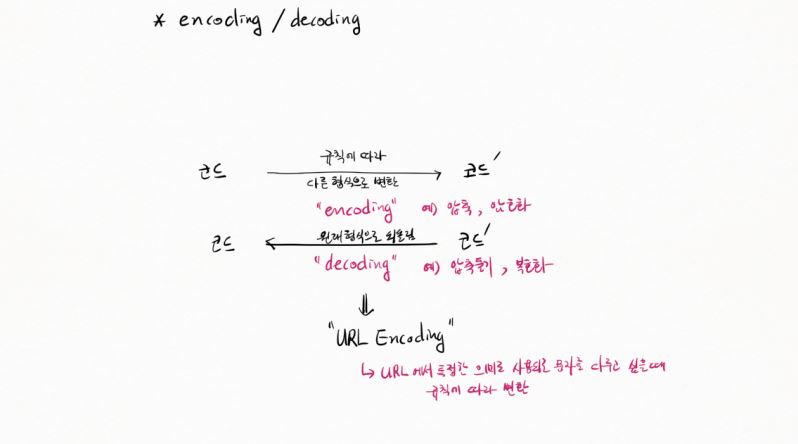 * encoding / decoding
규칙에 따라
코드 코드'
다른 형식으로 변환
"encoding" 예) 압축, 암호화
원래 형식으로 되돌림
코드 코드'
"decoding" 예) 압축풀기, 복호화
"URL Encoding"
↳ URL에서 특정한 의미로 사용되는 문자를 다루고 싶을때
규칙에 따라 변환